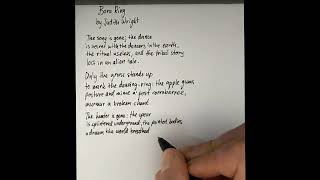 Bora Ring
by Judith Wright
The song is gone; the dance
is secret with the dancers in the earth,
the ritual useless, and the tribal story
lost in an alien tale.
Only the grass stands up
to mark the dancing-ring: the apple gums
posture and mime a past corroboree,
murmur a broken chant.
The hunter is gone: the spear
is splintered underground; the painted bodies
a dream the world breathed